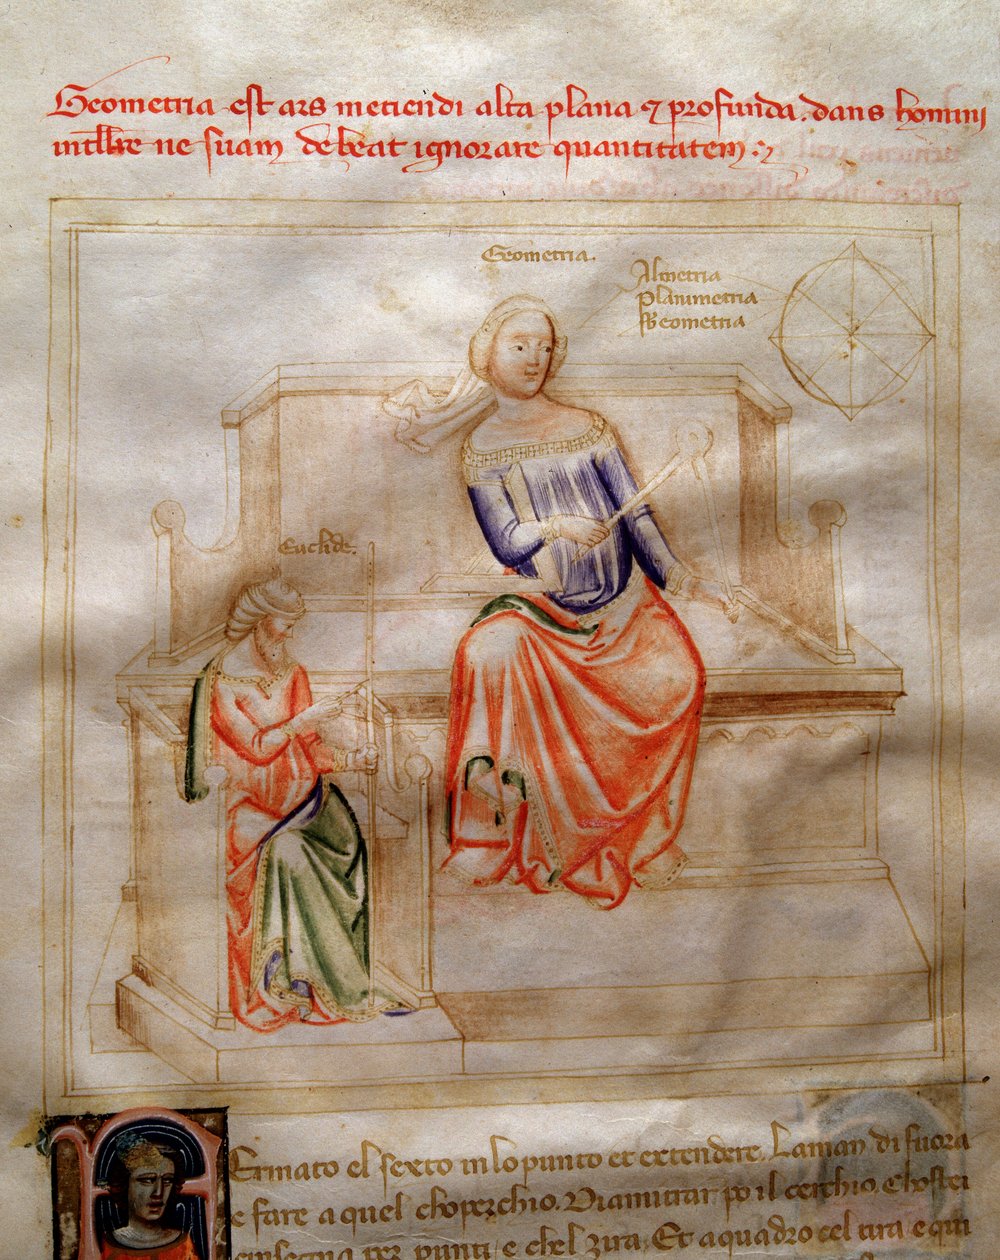 Geometria est ars metiendi alta plana ⁊ profunda. dans homini
intllre ne suam debeat ignorare quantitatem:
Geometria.
Altmetria
planimetria
Geometria
Euclide.
Fermato el sexto in lo punto et extendere. La man di fuora
e fare a quel choperchio. Diamitrar po il cerchio. e
e quadro cel tira e qui